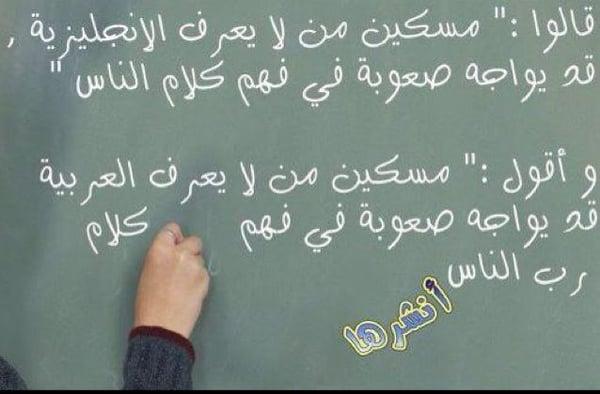 قالوا :" مسكين من لا يعرف الانجليزية ,
قد يواجه صعوبة في فهم كلام الناس "
و أقول :" مسكين من لا يعرف العربية
قد يواجه صعوبة في فهم كلام
رب الناس
أنشرها